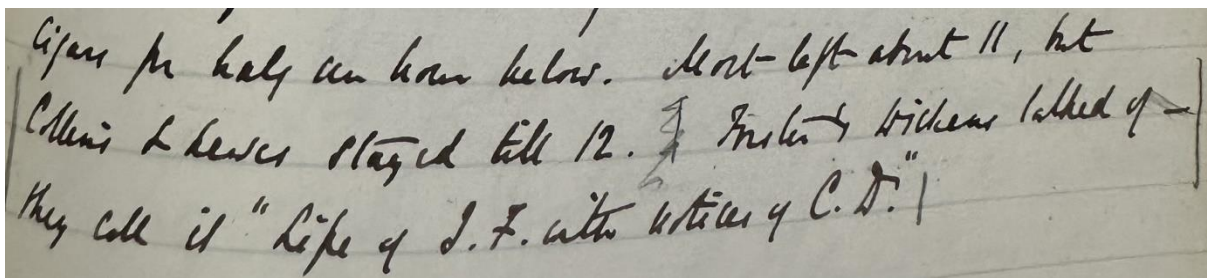 Cigars for half an hour below. Most left about 11, but
Collins & Lewes stayed till 12. Forster's Dickens talked of —
they call it "Life of J. F. with notices of C. D."